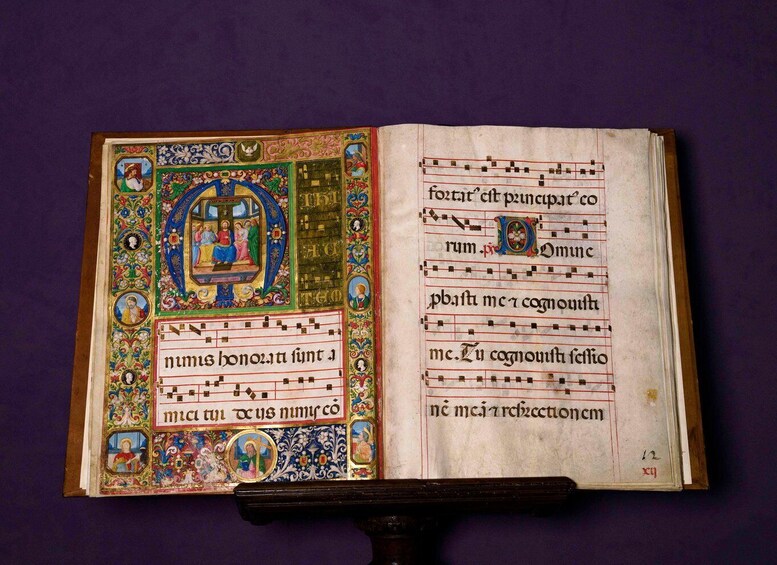 nimis honorati sunt a
mici tui deus nimis cō
fortat⁹ est principat⁹ eo
rum. ps Domine
ꝓbasti me ⁊ cognouisti
me. Tu cognouisti sessio
nē meā ⁊ resrectionem
12
xij